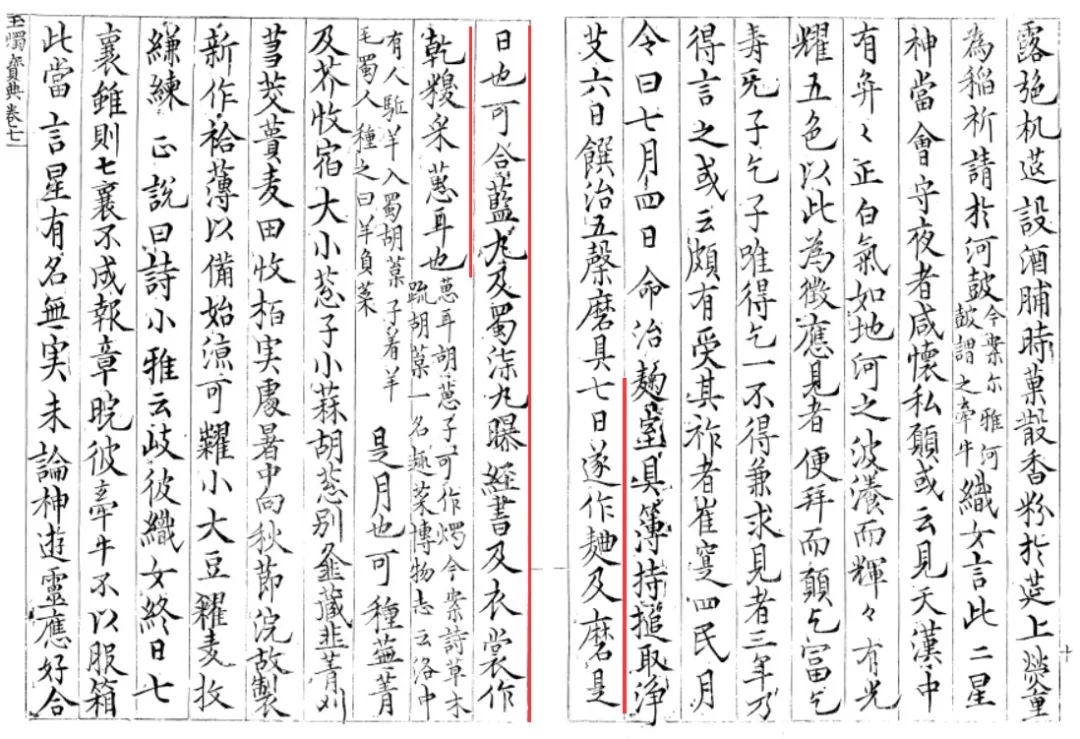 露施机筵設酒脯時菓散香粉於筵上熒重
為稲祈請於河皷今案尔雅河皷謂之牽牛織女言此二星
神當會守夜者咸懷私願或云見天漢中
有弈〻正白氣如地河之波瀁而輝〻有光
耀五色以此為徵應見者便拜而願乞冨乞
寿乞子乞子唯得乞一不得兼求見者三年乃
得言之或云頗有受其祚者崔寔四民月
令曰七月四日命治麴室具簿持搥取浄
艾六日饌治五糓磨具七日遂作麹及磨是
日也可合藍丸及蜀柒丸曝経書及衣裳作
乾糗采蕙耳也蕙耳胡蕙子可作燭今案詩草木疏胡菓一名趣菜博物志云洛中
有人駈羊入蜀胡菓子着羊毛蜀人種之曰羊負菜是月也可種蕪菁
及芥收宿大小葱子小蒜胡葱别韰藏韭菁刈
芻茭蕢麦田收栢実處暑中向秋節浣故製
新作袷薄以備始涼可糶小大豆糴麦投
縑練正説曰詩小雅云歧彼織女終日七
襄雖則七襄不成報章晥彼牽牛不以服箱
此當言星有名無実未論神遊靈應好合
玉燭寶典卷七
十